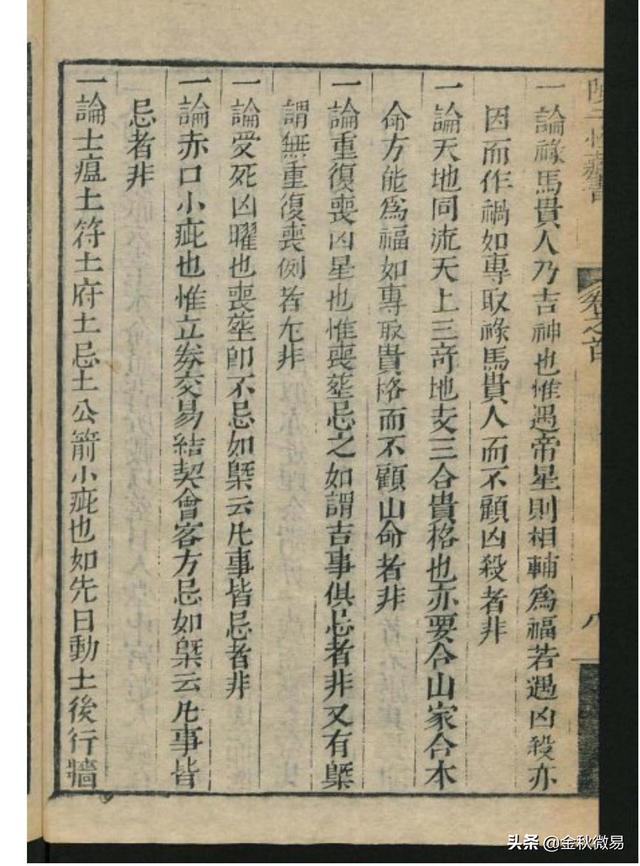 卷之首
八
一論祿馬貴人乃吉神也惟遇帝星則相輔為福若遇凶殺亦
因而作禍如專取祿馬貴人而不顧凶殺者非
一論天地同流天上三竒地支三合貴格也亦要合山家合本
命方能為福如專取貴格而不顧山命者非
一論重復喪凶星也惟喪塟忌之如謂吉事俱忌者非又有槩
謂無重復喪例者尤非
一論受死凶曜也喪塟卽不忌如槩云凡事皆忌者非
一論赤口小疵也惟立劵交易結契會客方忌如槩云凡事皆
忌者非
一論土瘟土符土府土忌土公箭小疵也如先日動土後行牆
头条 @金秋微易